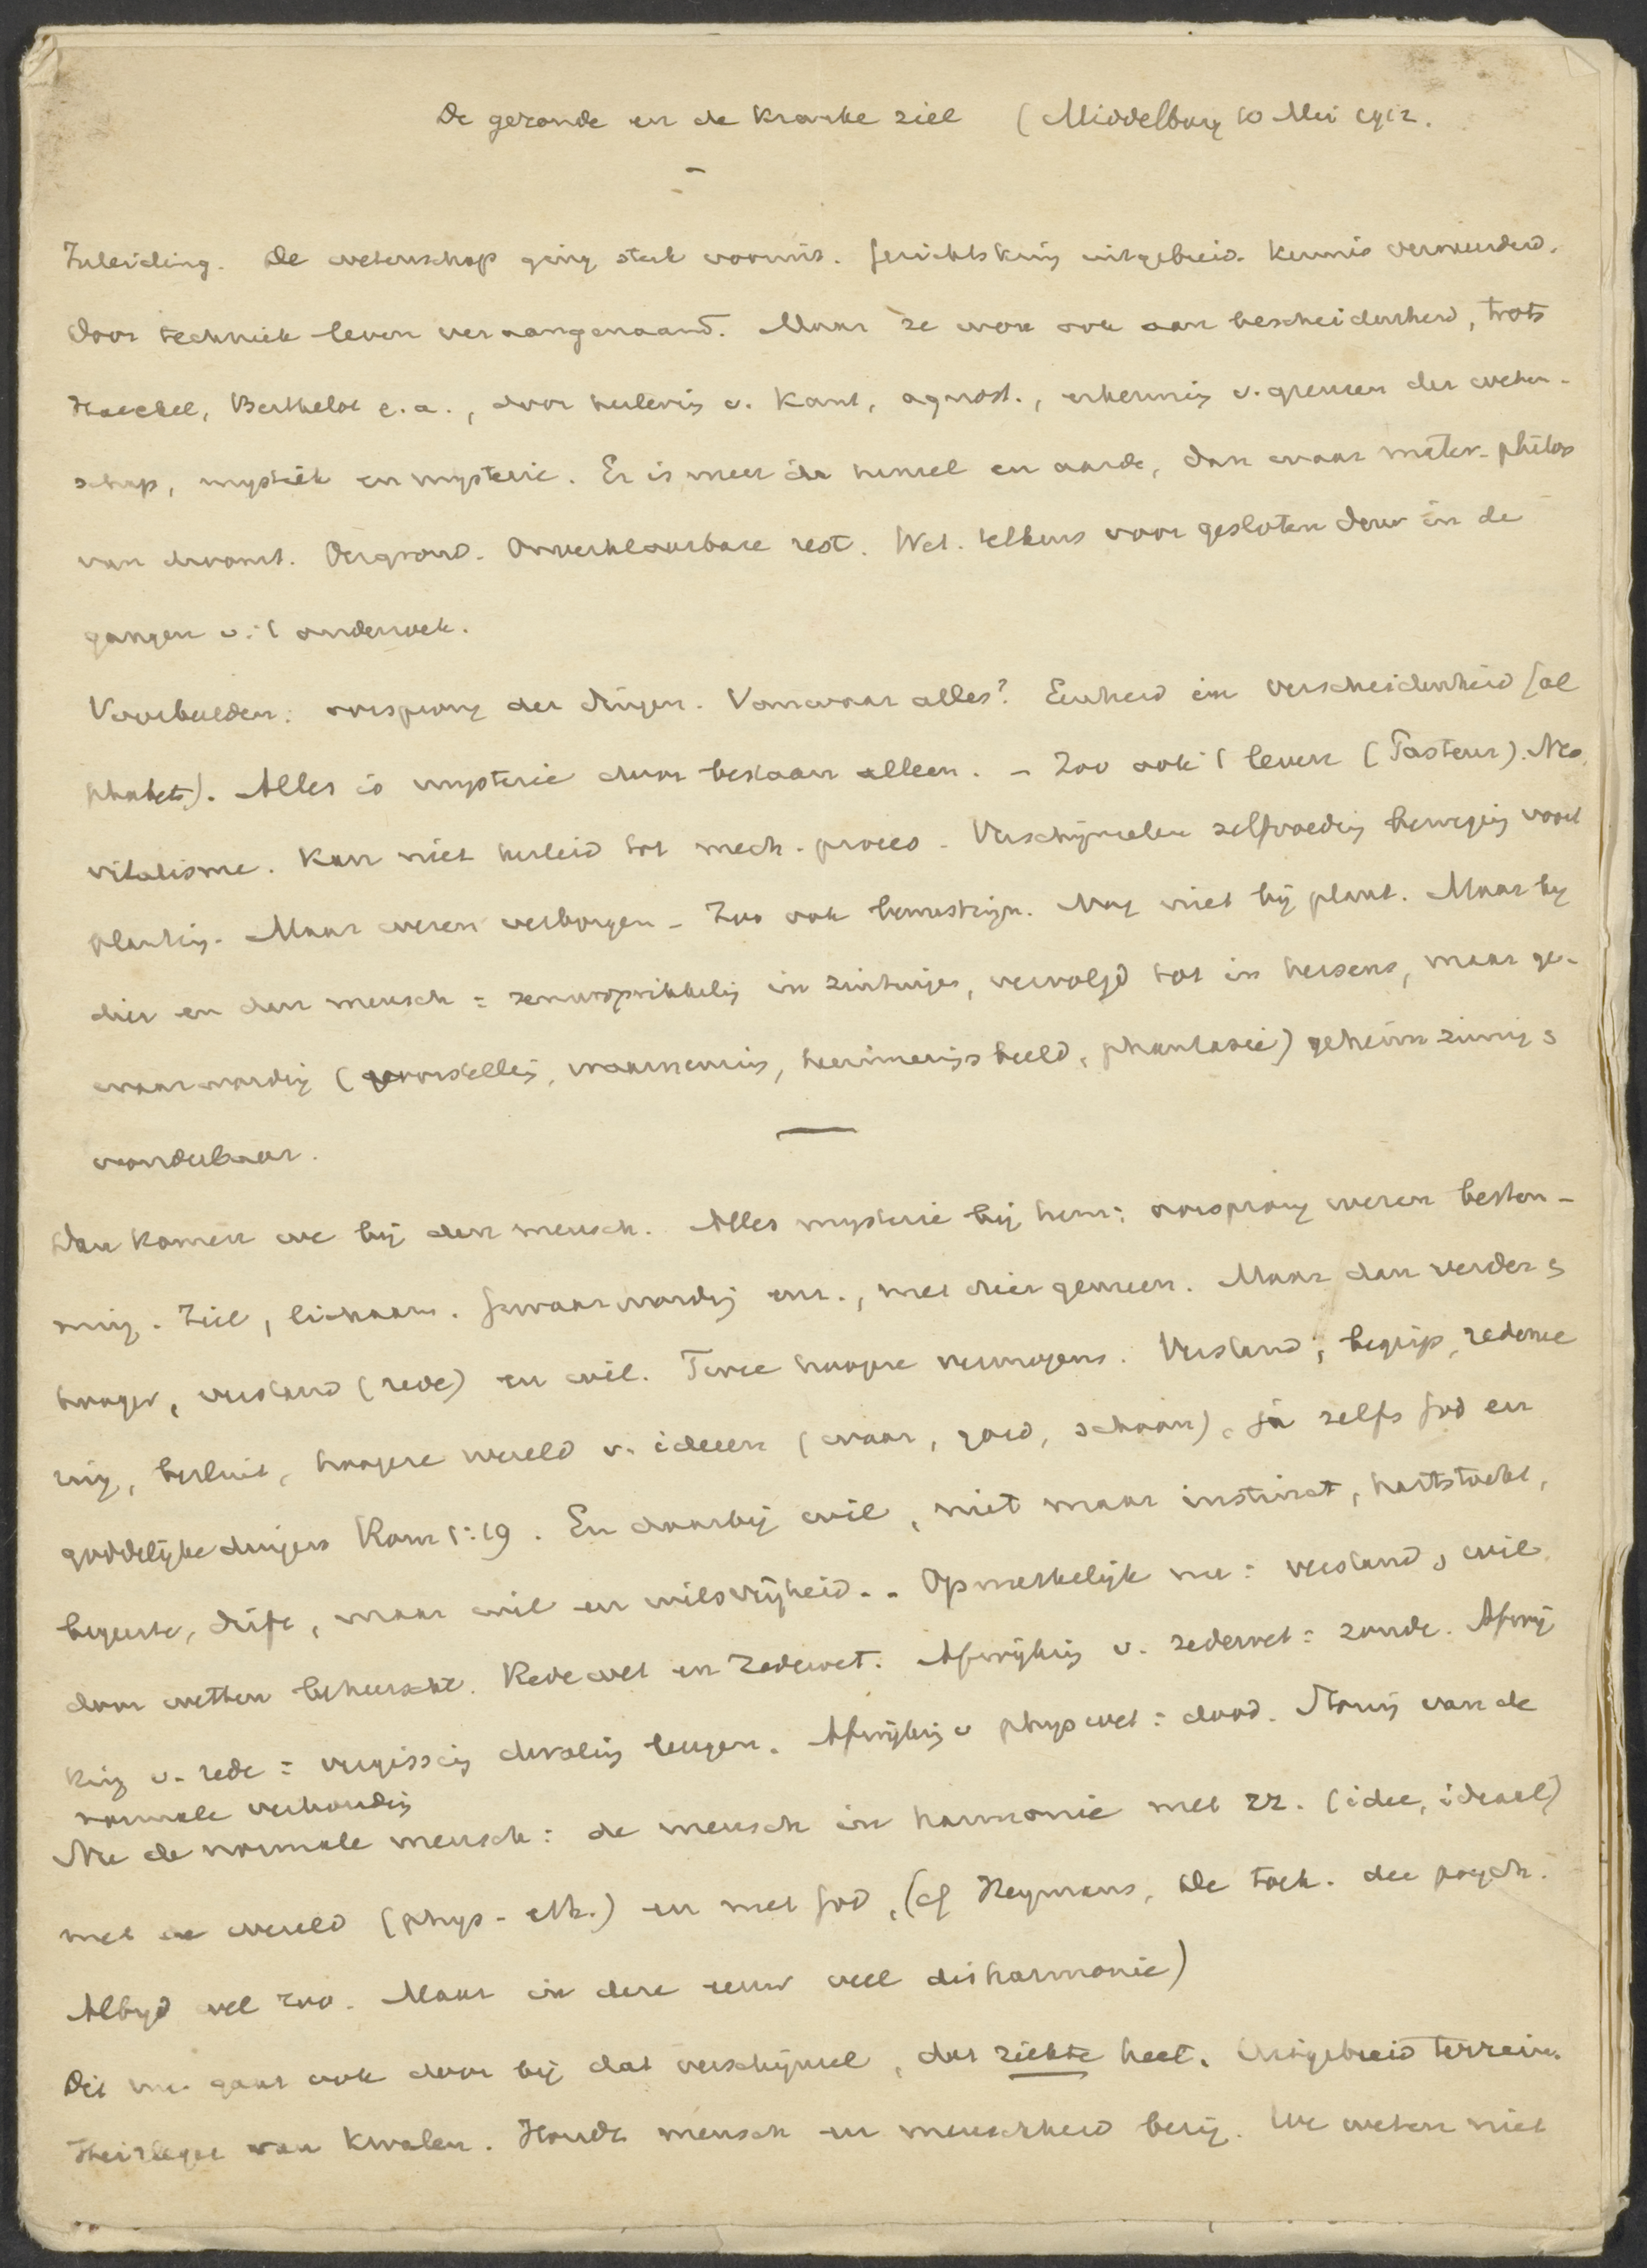 De gezonde en de kranke ziel (Middelburg 10 Mei 1912.
Inleiding. De wetenschap ging sterk vooruit. Gezichtskring uitgebreid. Kennis vermeerderd.
Door techniek leven veraangenaamd. Maar ze won ook aan bescheidenheid, trots
Haeckel, Berthelot e.a., door herleving v. Kant, agnost., erkenning v. grenzen der weten-
schap, mystiek en mysterie. Er is meer in hemel en aarde, dan waar mater. philos
van droomt. Oergrond. Onverklaarbare rest. Wet. telkens voor gesloten deur in de
gangen v. 't onderzoek.
Voorbeelden: oorsprong der dingen. Vanwaar alles? Eenheid in verscheidenheid (al
phabet). Alles is mysterie door bestaan alleen. - Zoo ook 't leven (Pasteur). Neo
vitalisme. Kan niet herleid tot mech. proces. Verschijnselen zelfvoeding beweging voort
planting. Maar wezen verborgen - Zoo ook bewustzijn. Nog niet bij plant. Maar bij
dier en den mensch = zenuwprikkeling in zintuigen, vervolgd tot in hersens, maar ge-
waarwording (voorstelling, waarneming, herinneringsbeeld, phantasie) geheimzinnig &
wonderbaar.
Dan komen we bij den mensch. Alles mysterie bij hem: oorsprong wezen bestem-
ming. Ziel, lichaam. Gewaarwording enz., met dier gemeen. Maar dan verder &
hooger, verstand (rede) en wil. Twee hoogere vermogens. Verstand, begrip, redenee
ring, besluit, hoogere wereld v. ideeen (waar, goed, schoon), ja zelfs God en
goddelijke dingen Rom 1:19. En daarbij wil, niet maar instinct, hartstocht,
begeerte, drift, maar wil en wilsvrijheid. - Opmerkelijk nu: verstand & wil
door wetten beheerscht. Redewet en Zedewet. Afwijking v. zedewet = zonde. Afwij
king v. rede = vergissing dwaling leugen. Afwijking v phys wet = dood. Storing van de
normale verhouding
Nu de normale mensch: de mensch in harmonie met zz. (idee, ideaal)
met de wereld (phys - eth.) en met God, (cf Heymans, De toek. der psych.
Altijd wel zoo. Maar in deze eeuw veel disharmonie)
Dit nu gaat ook door bij dat verschijnsel, dat ziekte heet. Uitgebreid terrein.
Heirleger van kwalen. Houdt mensch en menschheid bezig. We weten niet